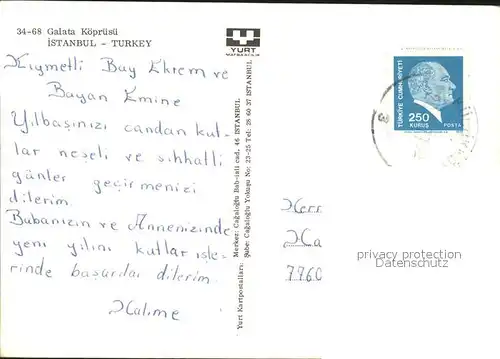 34-68 Galata Köprüsü
İSTANBUL - TURKEY
Kıymetli Bay Ekrem ve
Bayan Emine
Yılbaşınızı candan kut-
lar neşeli ve sıhhatli
günler geçirmenizi
dilerim.
Bubanızın ve Annenizinde
yeni yılını kutlar işle-
rinde başarılar dilerim.
Halime
YURT
Yurt Kartpostalları: Merkez: Cağaloğlu Bab-ıali cad. 46 İSTANBUL
Şube: Cağaloğlu Yokuşu No: 23-25 Tel: 26 60 37 İSTANBUL
TÜRKİYE CUMHURİYETİ
250
KURUŞ POSTA
3
Herr
Ha
7760
privacy protection
Datenschutz